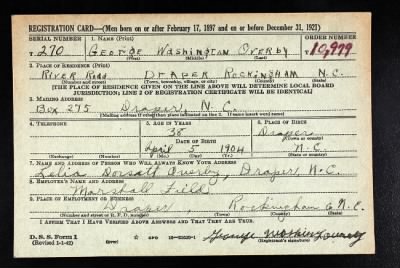 REGISTRATION CARD—(Men born on or after February 17, 1897 and on or before December 31, 1921)
SERIAL NUMBER 1. NAME (Print) ORDER NUMBER
T 270 George Washington Overby 10,979
(First) (Middle) (Last)
2. PLACE OF RESIDENCE (Print)
River Road Draper Rockingham N.C.
(Number and street) (Town, township, village, or city) (County) (State)
[THE PLACE OF RESIDENCE GIVEN ON THE LINE ABOVE WILL DETERMINE LOCAL BOARD
JURISDICTION; LINE 2 OF REGISTRATION CERTIFICATE WILL BE IDENTICAL]
3. MAILING ADDRESS
Box 275 Draper, N.C.
[Mailing address if other than place indicated on line 2. If same insert word same]
4. TELEPHONE 5. AGE IN YEARS 6. PLACE OF BIRTH
38 Draper
DATE OF BIRTH (Town or county)
April 5 1904 N.C.
(Exchange) (Number) (Mo.) (Day) (Yr.) (State or country)
7. NAME AND ADDRESS OF PERSON WHO WILL ALWAYS KNOW YOUR ADDRESS
Lelia Overby, Draper, N.C.
8. EMPLOYER'S NAME AND ADDRESS
Marshall Field
9. PLACE OF EMPLOYMENT OR BUSINESS
Draper, Rockingham Co N.C.
(Number and street or R. F. D. number) (Town) (County) (State)
I AFFIRM THAT I HAVE VERIFIED ABOVE ANSWERS AND THAT THEY ARE TRUE.
D. S. S. Form 1
(Revised 1-1-42) (over) GPO George Washington Overby
(Registrant's signature)